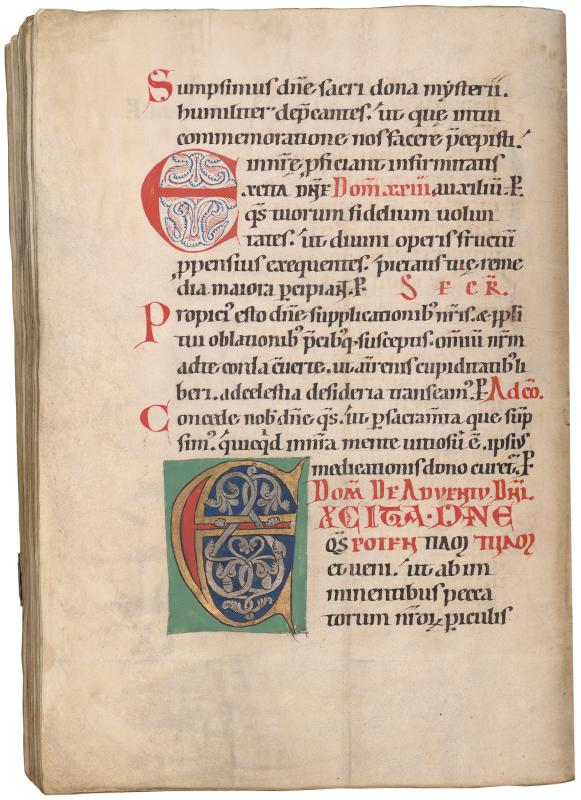 Sumpsimus dñe sacri dona mẏsterii.
humiliter dep̄cantes. ut que intui
commemoratione nos facere p̄cepisti.
in nr̄e ꝓficiant infirmitatis
EXCITA DN̄E Dom̄. xxiiii auxiliū. P.
qs̄ tuorum fidelium volun
tates. ut diuini operis fructū
ꝓpensius exequentes. pietatis tue reme
dia maiora ꝑcipiant. P. SECR̄.
Propiciꝰ esto dn̄e supplicationibꝰ nr̄is. & ppłi
tui oblationibꝰ p̄cibꝰq. susceptis. om̄iū nr̄m
ad te corda c̄uerte. ut a terrenis cupiditatibꝰ li
beri. ad celestia desideria transeamꝰ. P. Ad cō.
Concede nobꝰ dn̄e qs̄. ut ꝑ sacram̄ta que sūp
simꝰ. quicqͥd in nr̄a mente uitiosū ē. ipsiꝰ
medicationis dono curet̄. P
DOM̄. DE ADVENTV. DN̄I.
EXCITA. DN̄E
QS̄ POTEN TIAM TUAM
et ueni. ut ab im
minentibus pecca
torum nr̄oꝝ ꝑiculis